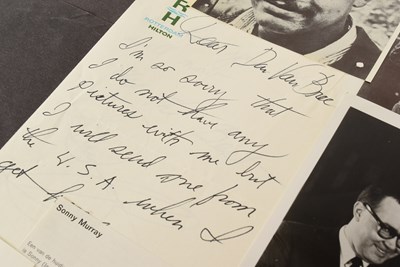 ROTTERDAM
HILTON
Dear
I'm so sorry that
I do not have any
pictures with me but
I will send one from
the U.S.A. when I
get
Sonny Murray
Een van de